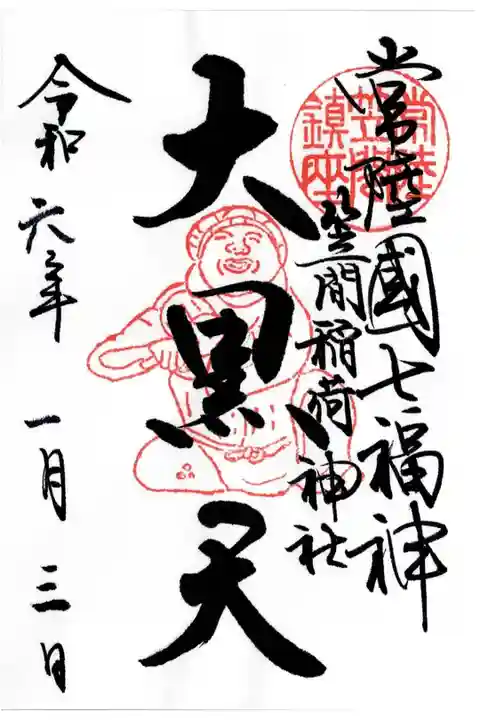 常陸國七福神
笠間稲荷神社
常陸
笠間
鎮座
大黒天
令和六年一月三日